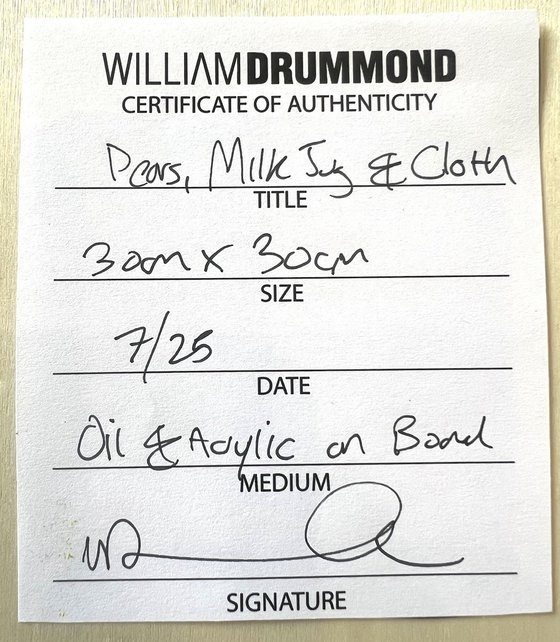 WILLIAMDRUMMOND
CERTIFICATE OF AUTHENTICITY
Pears, Milk Jug & Cloth
TITLE
30cm x 30cm
SIZE
7/25
DATE
Oil & Acrylic on Board
MEDIUM
SIGNATURE